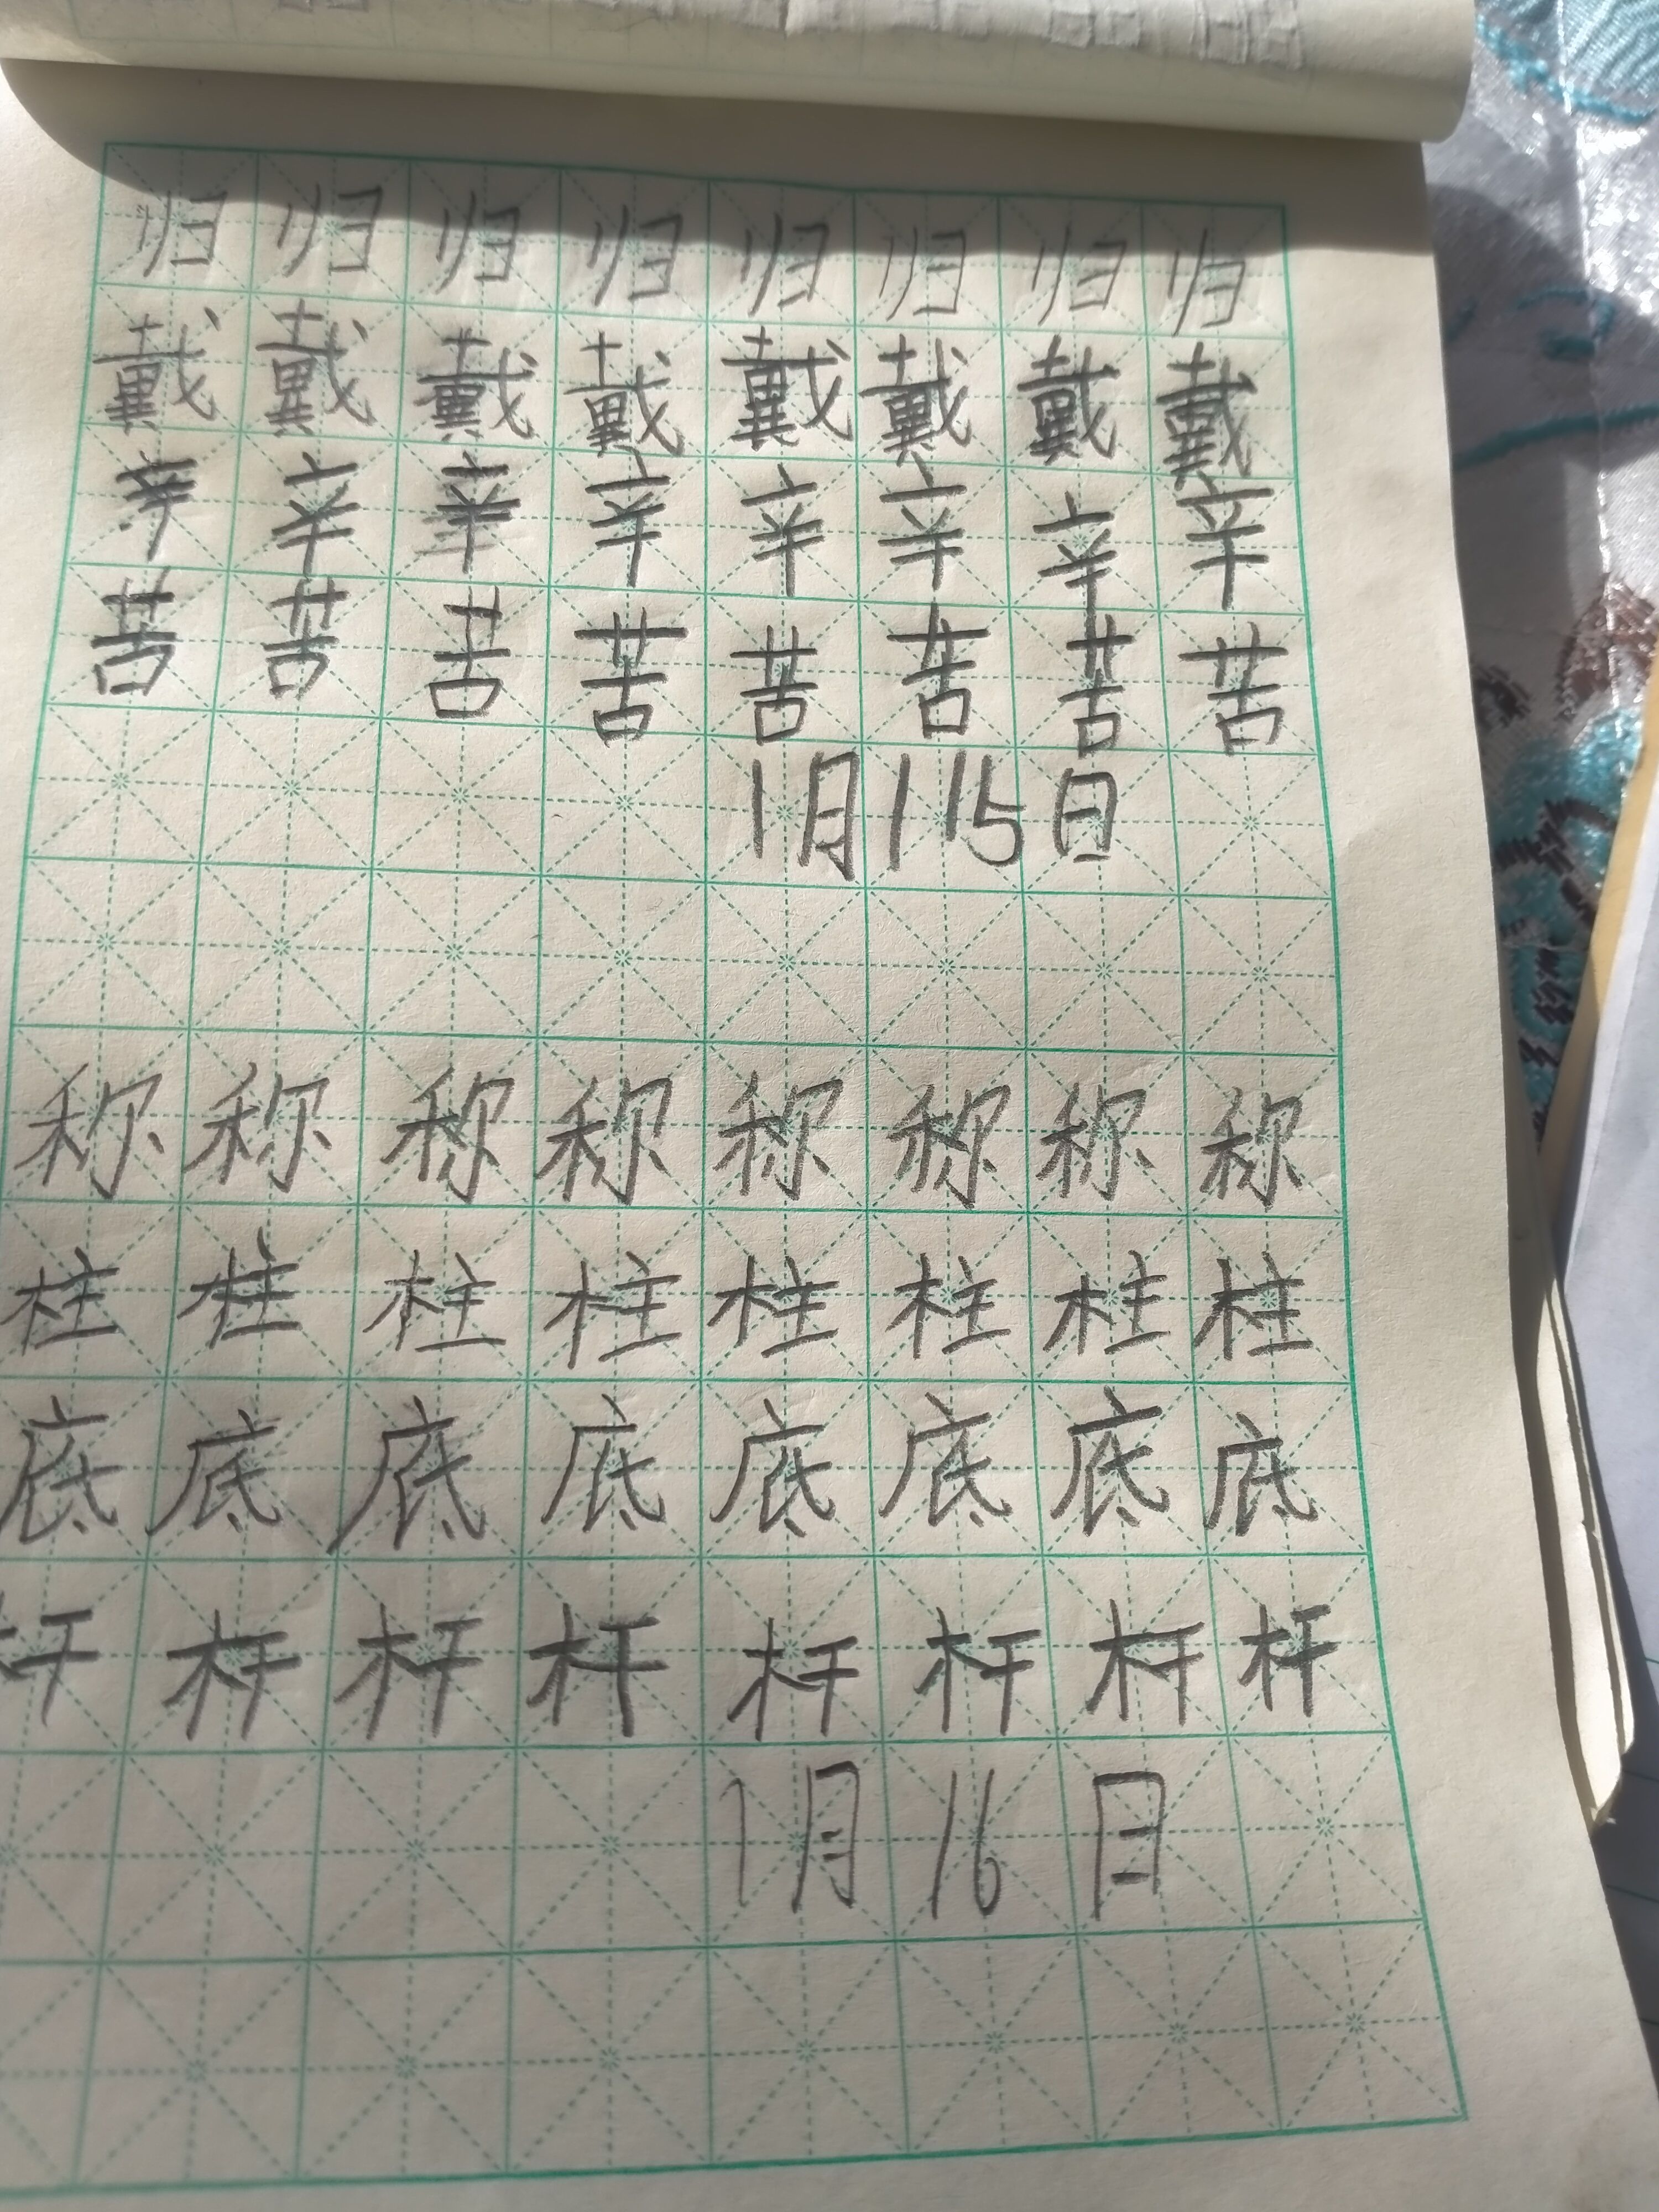 归归归归归归归归
戴戴戴戴戴戴戴戴
辛辛辛辛辛辛辛辛
苦苦苦苦苦苦苦苦
1月115日
称称称称称称称称
柱柱柱柱柱柱柱柱
底底底底底底底底
杆杆杆杆杆杆杆杆
1月16日